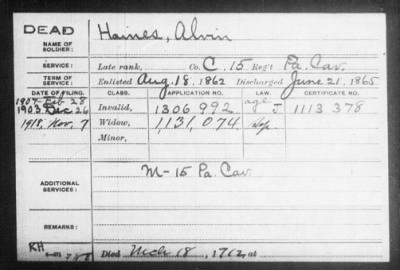 DEAD Haines, Alvin
NAME OF SOLDIER:
SERVICE: Late rank, Co. C, 15 Reg't Pa. Cav.
TERM OF SERVICE: Enlisted Aug. 18, 1862 Discharged June 21, 1865
DATE OF FILING. CLASS. APPLICATION NO. LAW. CERTIFICATE NO.
1907 Feb 28 age
1903 Dec 26 Invalid, 1306 992 J 1113 378
1918, Nov. 7 Widow, 1,131,074
Minor,
M-15 Pa Cav
ADDITIONAL SERVICES:
REMARKS:
KH
Died Mch 18, at